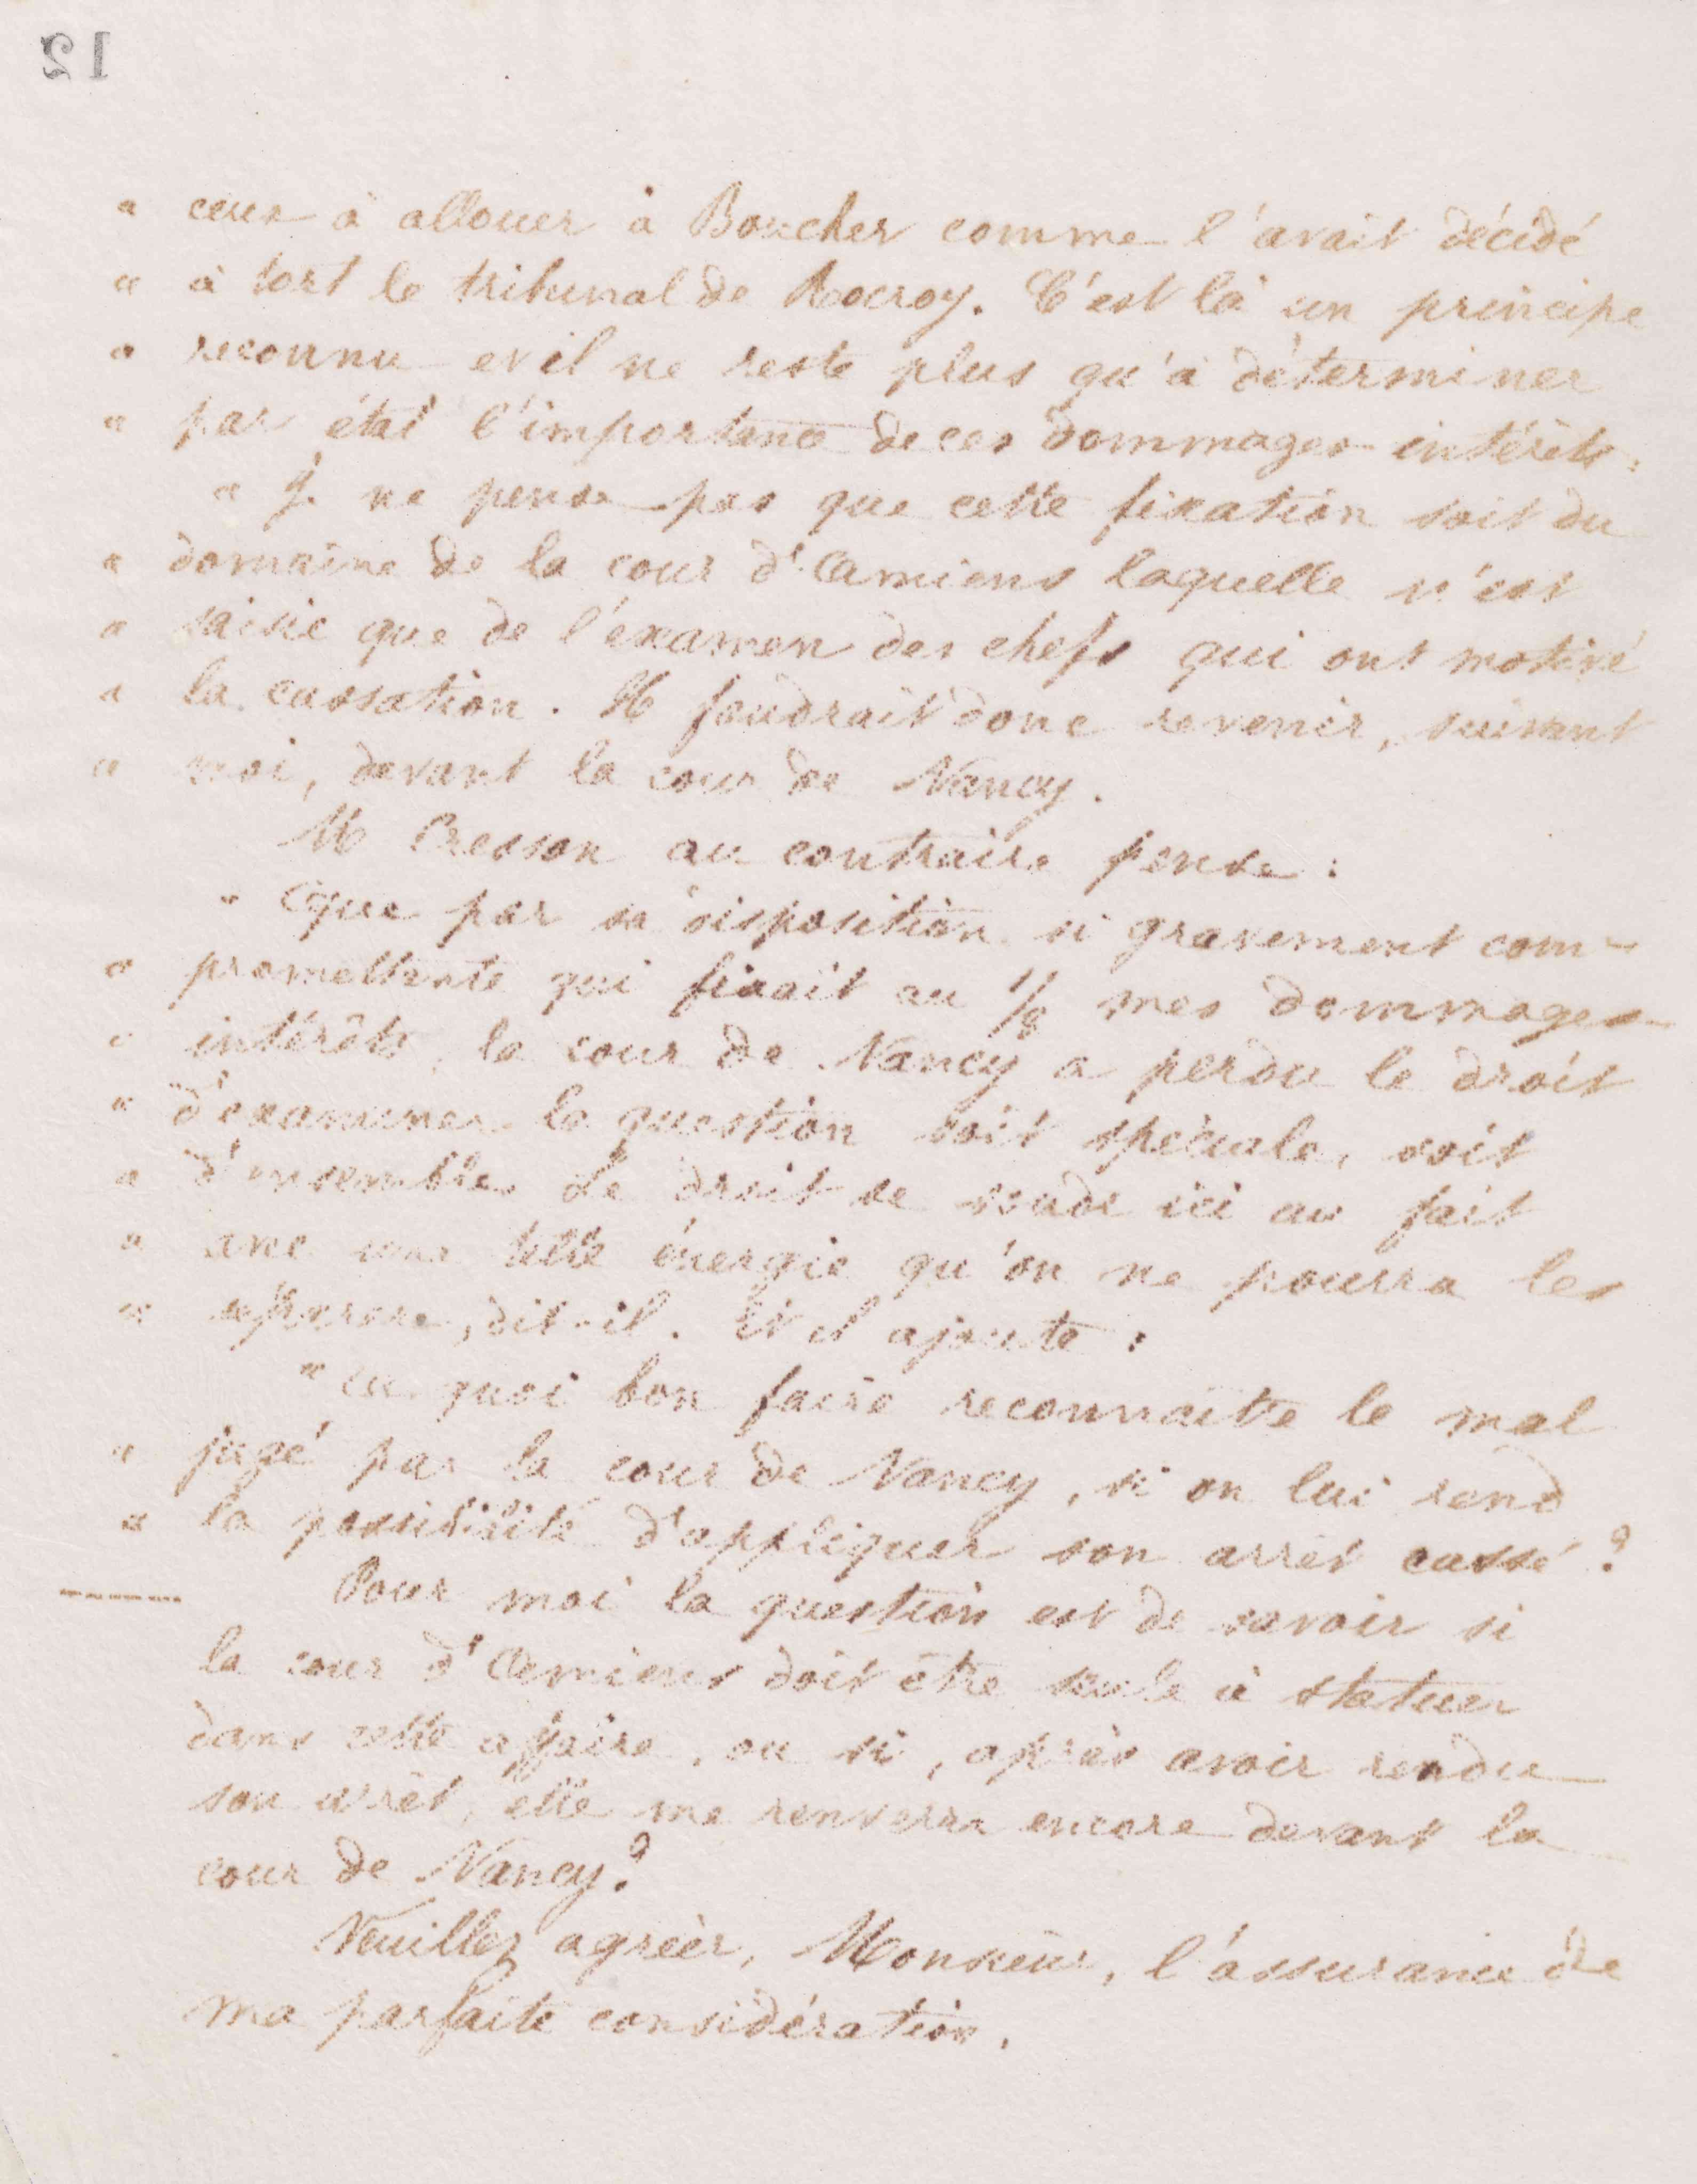 12
« ceux à allouer à Boucher comme l'avait décidé
« à tort le tribunal de Rocroy. C'est là un principe
« reconnu et il ne reste plus qu'à déterminer
« par état l'importance de ces dommages intérêts.
« Je ne pense pas que cette fixation soit du
« domaine de la cour d'Amiens laquelle n'est
« saisie que de l'examen des chefs qui ont motivé
« la cassation. Il faudrait donc revenir, suivant
« moi, devant la cour de Nancy.
M Cresson au contraire pense :
« Que par sa disposition si gravement com-
« promettante qui fixait au 1/8 mes dommages
« intérêts, la cour de Nancy a perdu le droit
« d'examiner la question soit spéciale, soit
« d'ensemble. Le droit se soude ici au fait
« avec une telle énergie qu'on ne pourra les
« séparer, dit-il. Et il ajoute :
« A quoi bon faire reconnaître le mal
« jugé par la cour de Nancy, si on lui rend
« la possibilité d'appliquer son arrêt cassé ?
Pour moi la question est de savoir si
la cour d'Amiens doit être seule à statuer
dans cette affaire, ou si, après avoir rendu
son arrêt, elle me renverra encore devant la
cour de Nancy ?
Veuillez agréer, Monsieur, l'assurance de
ma parfaite considération.